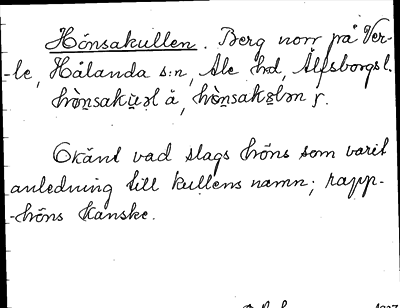 Hönsakullen. Berg norr på Ver-
-le, Hålanda s:n, Ale hd, Älfsborgs l.
hò̱nsakɯ̱əl å, hò̱nsakələn ʃ.
Okänt vad slags höns som varit
anledning till kullens namn; rapp-
-höns kanske.